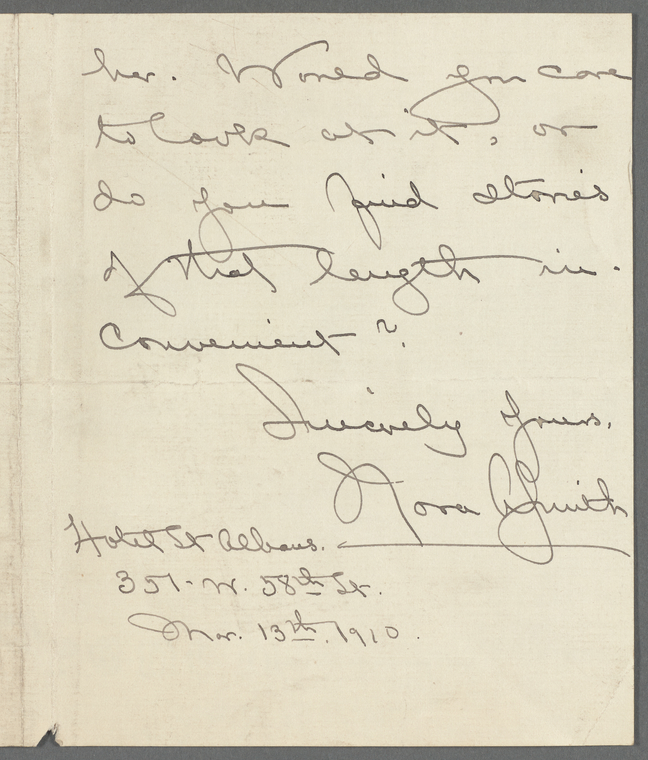 her. Would you care
to look at it, or
do you find stories
of that length in-
convenient?
Sincerely yours,
Nora A Smith
Hotel St Albans.
351- W. 58th St.
Mar. 13th, 1910.